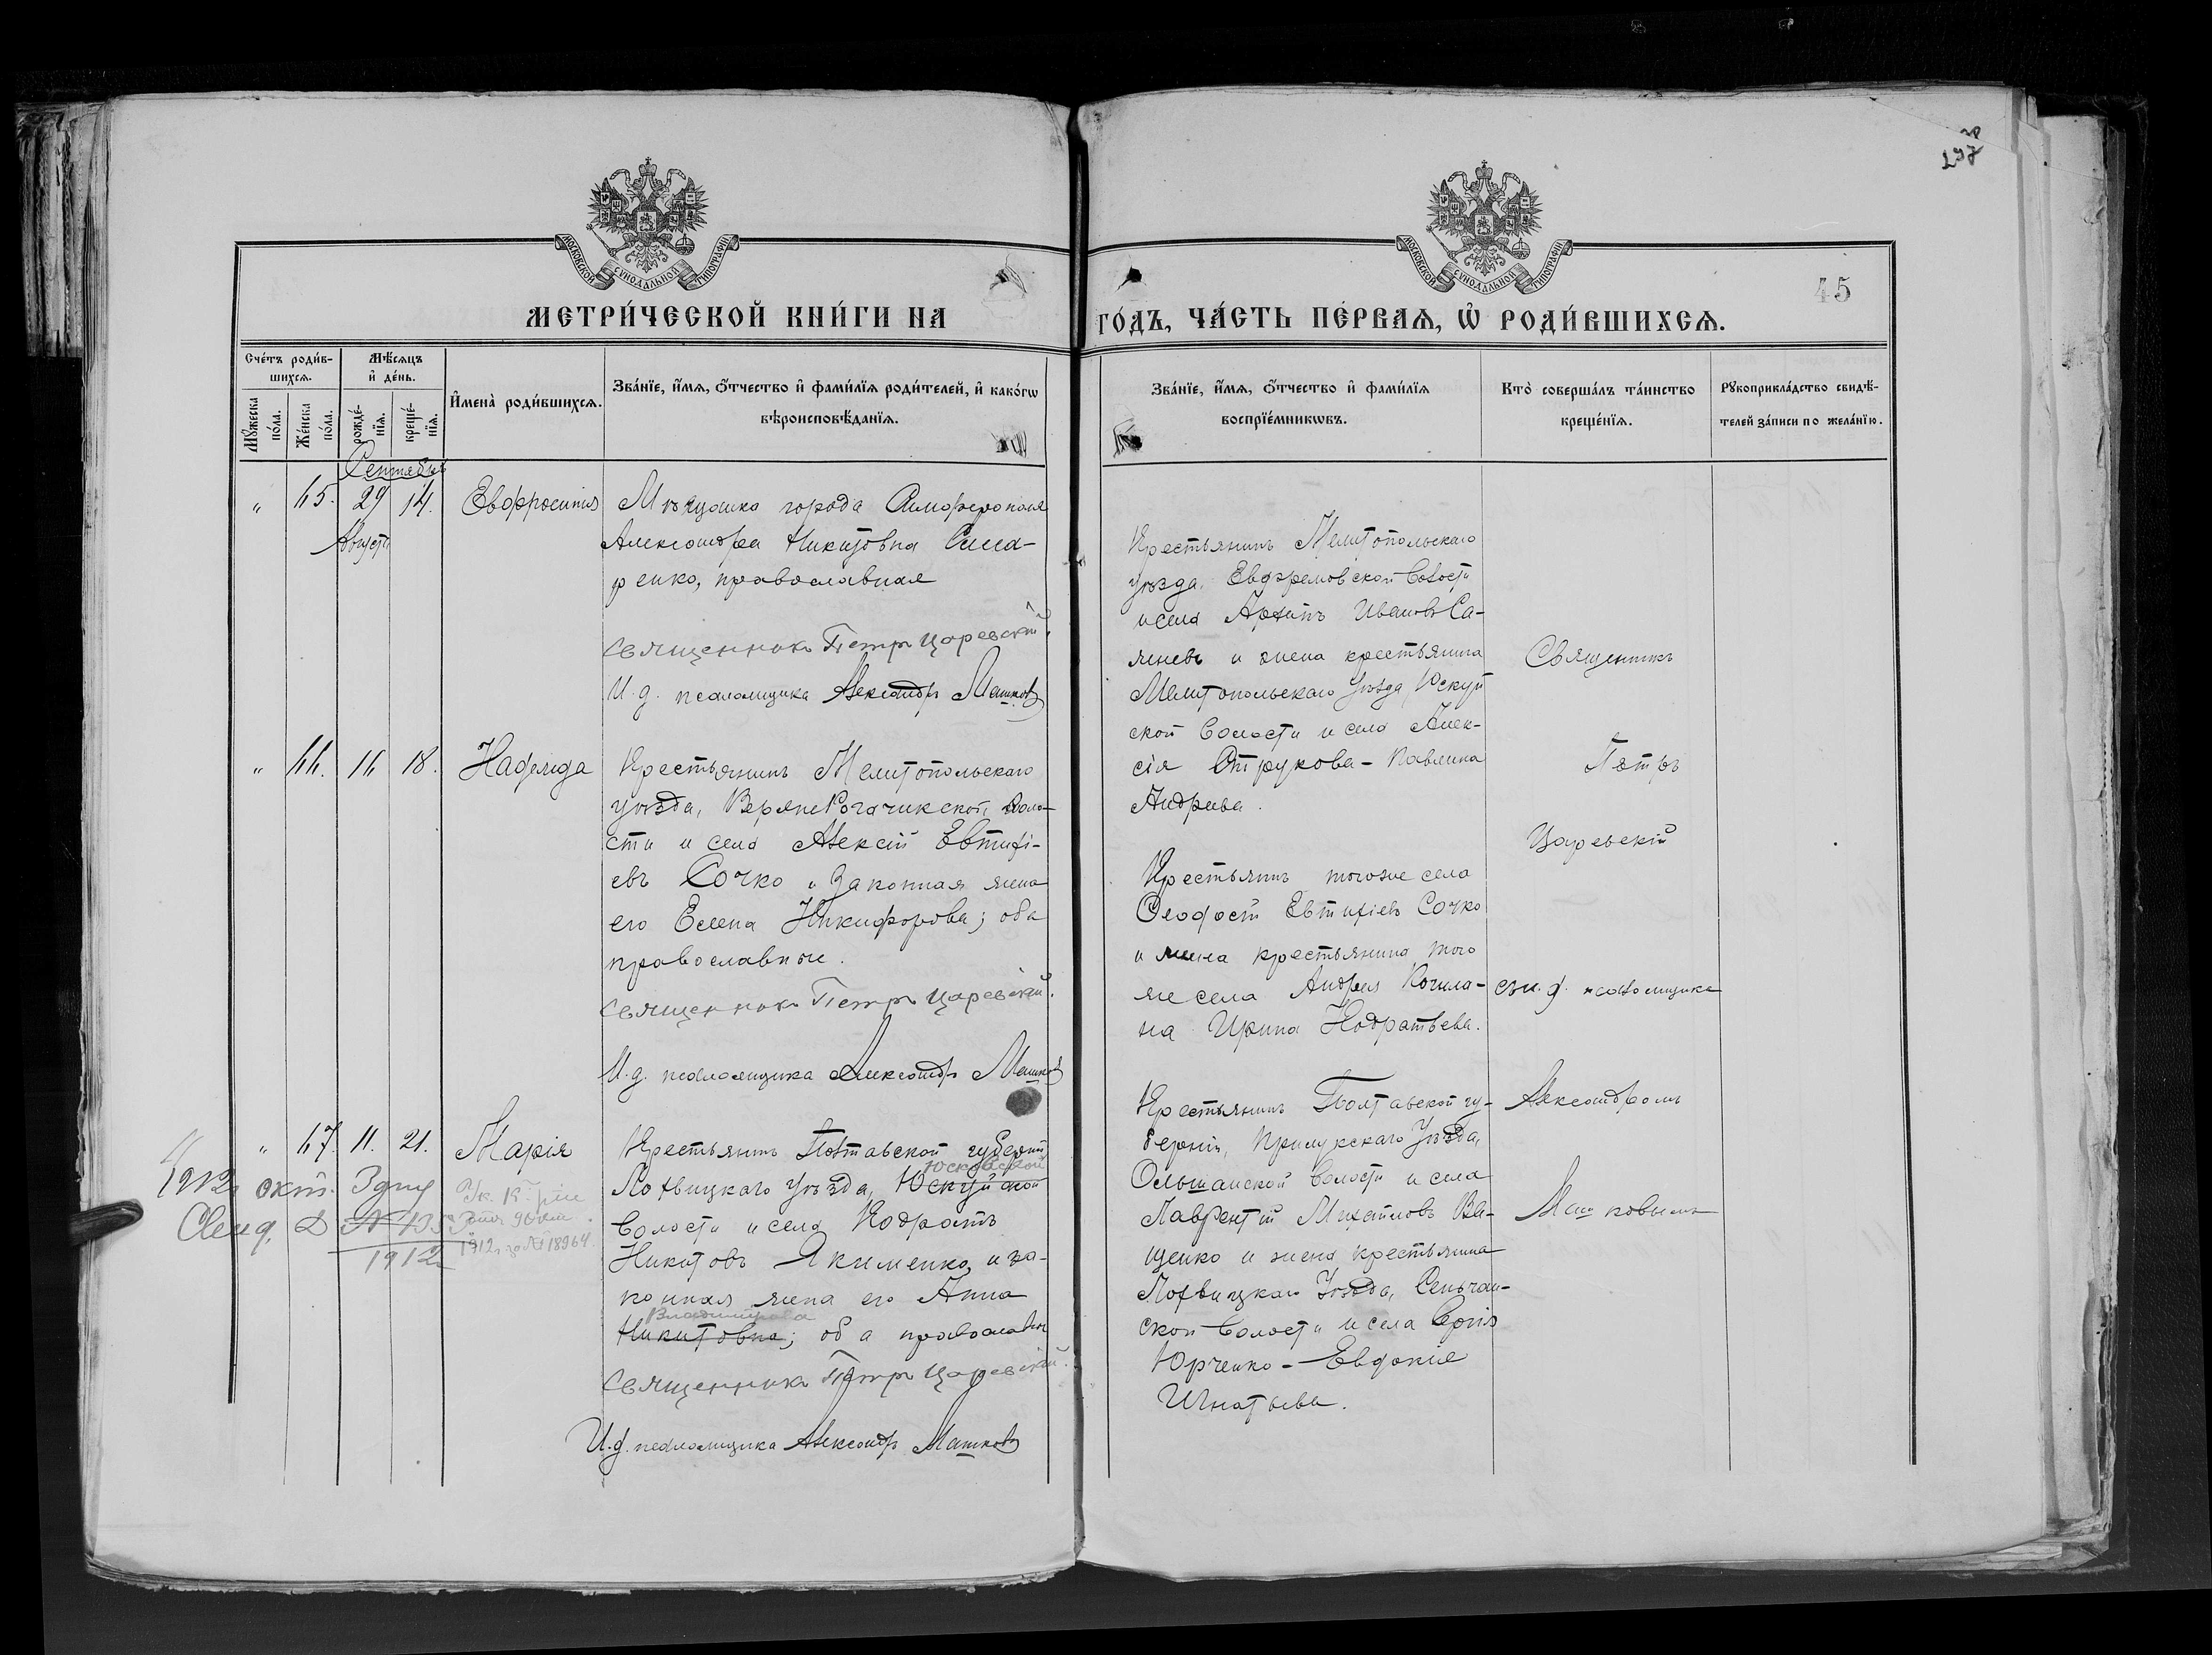 297
45
МОСКОВСКОЙ СѴНОДАЛЬНОЙ ТИПОГРАФІИ
МОСКОВСКОЙ СѴНОДАЛЬНОЙ ТИПОГРАФІИ
МЕТРИ́ЧЕСКОЙ КНИ́ГИ НА
ГО́ДЪ, ЧА́СТЬ ПЕ́РВАѦ, Ѡ҆ РОДИ́ВШИХСѦ.
Сче́тъ роди́в-
шихсѧ.
Мѣ́сѧцъ
и҆ де́нь.
Мꙋ́жеска по́ла.
Же́нска по́ла.
рожде́-
нїѧ.
креще́-
нїѧ.
И҆мена̀ роди́вшихсѧ.
Зва́нїе, и҆́мѧ, ѻ҆́тчество и҆ фами́лїѧ роди́телей, и҆ како́гѡ
вѣроисповѣ́данїѧ.
Зва́нїе, и҆́мѧ, ѻ҆́тчество и҆ фами́лїѧ
воспрїе́мникѡвъ.
Кто̀ соверша́лъ та́инство
креще́нїѧ.
Рꙋкоприкла́дство свидѣ́-
телей за́писи по жела́нїю.
Сентябрь
„ 65. 29 14. Евфросинія
Августа
Мѣщанка города Симферополя
Александра Никитовна Сила-
ренко, православная
Священникъ Петръ Царевскій.
И. д. псаломщика Александръ Машковъ
Крестьянинъ Мелитопольскаго
уѣзда, Ефремовской волости
и села Архипъ Ивановъ Са-
яневъ и жена крестьянина
Мелитопольскаго уѣзда, Юскуй
ской волости и села Алек-
сія Отрукова - Павлина
Андреева.
„ 66. 16 18. Надежда
Крестьянинъ Мелитопольскаго
уѣзда, ВерхнеРогачикской воло-
сти и села Алексій Евтихі-
евъ Сочко и законная жена
его Елена Никифорова; оба
православные.
Священникъ Петръ Царевскій.
И. д. псаломщика Александръ Машковъ
Крестьянинъ того же села
Феодосій Евтихіевъ Сочко
и жена крестьянина того
же села Андрея Кочила-
на Ирина Кодратьева.
„ 67. 11. 21. Марія
1912 г. окт. 3 дня
1912 г. за № 18964.
1912
Крестьянинъ Полтавской губерніи
Юсковской
Лохвицкаго уѣзда, Юскуйской
волости и села Кодратъ
Никитовъ Якименко и за-
конная жена его Анна
Владимірова
Никитовна; оба православны
Священникъ Петръ Царевскій.
И. д. псаломщика Александръ Машковъ
Крестьянинъ Полтавской гу-
берніи, Прилукскаго уѣзда,
Ольшанской волости и села
Лаврентій Михайловъ Ва-
щенко и жена крестьянина
Лохвицкаго уѣзда, Сенчан-
ской волости и села Сергія
Юрченко - Евдокія
Игнатьева.
Священникъ
Петръ
Царевскій
съ и. д. псаломщика
Александромъ
Машковымъ